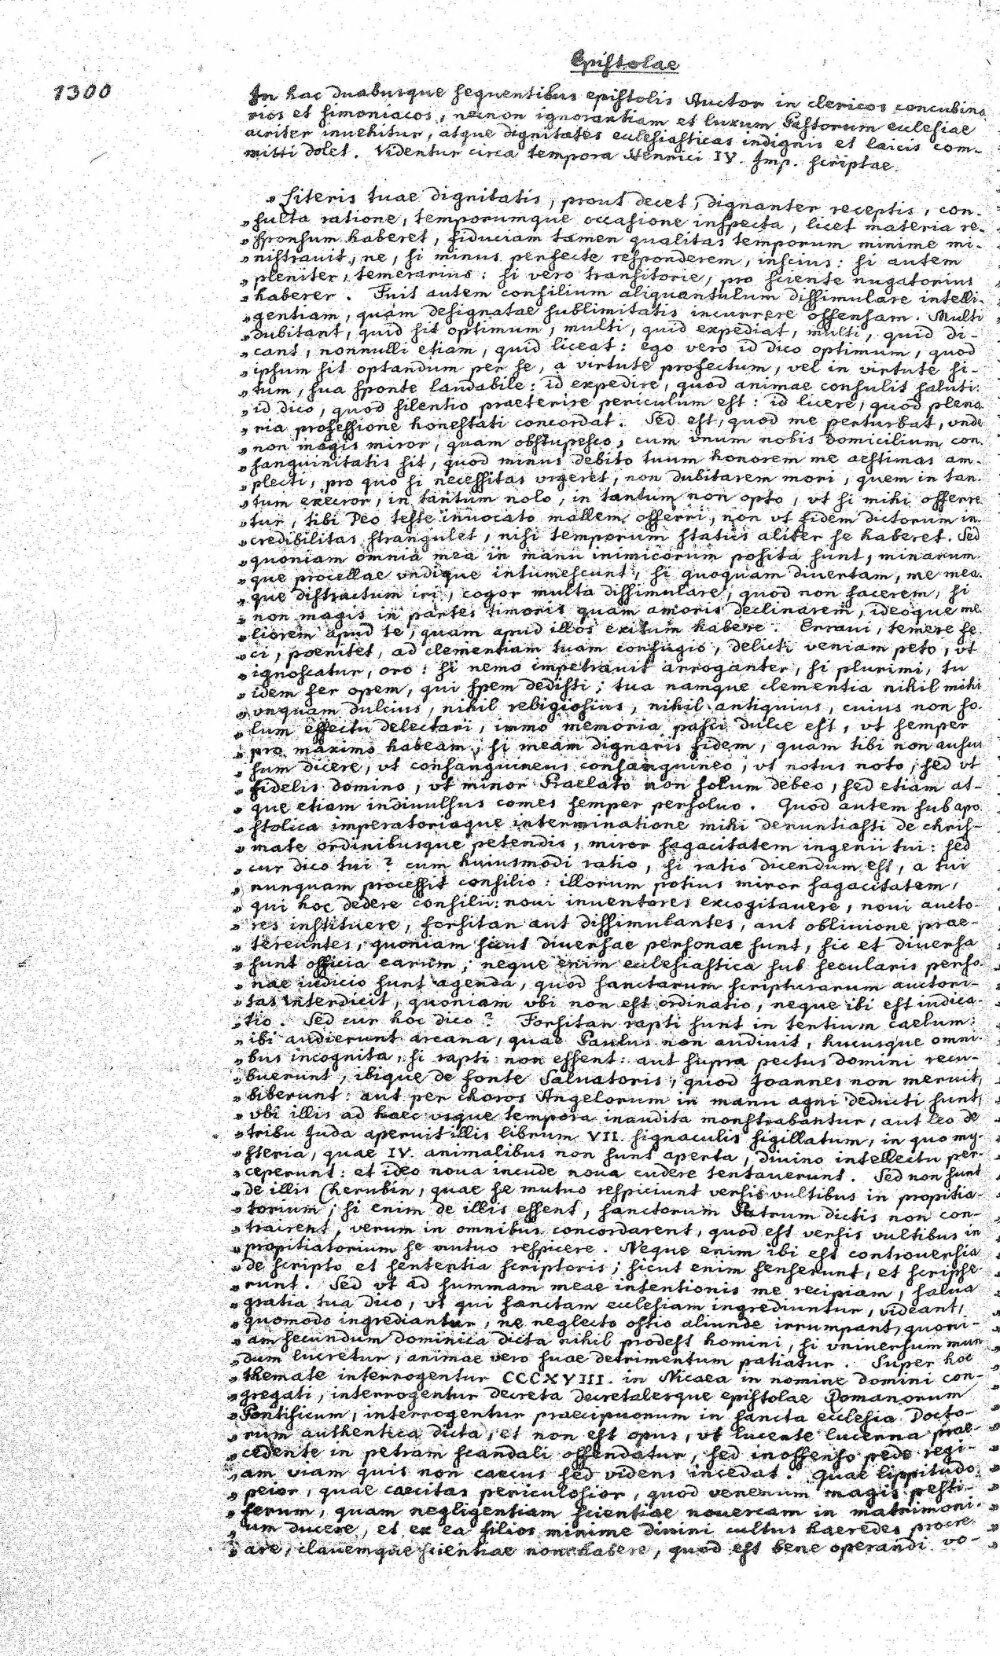 Epistolae
1300
In hac duabusque sequentibus epistolis Auctor in clericos concubina
rios et simoniacos, necnon ignorantiam et luxum Pastorum ecclesiae
acriter invehitur, atque dignitates ecclesiasticas indignis et laicis com-
mitti dolet. Videntur circa tempora Henrici IV. Imp. scriptae.
„Literis tuae dignitatis, prout decet, dignanter receptis, con-
„sulta ratione, temporumque occasione inspecta, licet materia re-
„sponsum haberet, fiduciam tamen qualitas temporum minime mi-
„nistravit, ne, si minus perfecte responderem, inscius: si autem
„pleniter, temerarius: si vero transitorie, pro sciente nugatorius
„haberer. Fuit autem consilium aliquantulum dissimulare intelli-
„gentiam, quam designatae sublimitatis incurrere offensam. Multi
„dubitant, quid sit optimum, multi, quid expediat, multi, quid di-
„cant, nonnulli etiam, quid liceat: ego vero id dico optimum, quod
„ipsum sit optandum per se, a virtute profectum, vel in virtute si-
„tum, sua sponte laudabile: id expedire, quod animae consulis saluti:
„id dico, quod silentio praeterire periculum est: id licere, quod plena
„ria professione honestati concordat. Sed est, quod me perturbat, unde
„non magis miror, quam obstupesco, cum unum nobis domicilium con
„sanguinitatis sit, quod minus debito tuum honorem me aestimas am-
„plecti, pro quo si necessitas urgeret, non dubitarem mori, quem in tan-
„tum execror, in tantum nolo, in tantum non opto, vt si mihi offerre
„tur, tibi Deo teste invocato mallem offerri, non vt fidem dictorum in
„credibilitas strangulet, nisi temporum status aliter se haberet. Sed
„quoniam omnia mea in manu inimicorum posita sunt, minarum
„que procellae vndique intumescunt, si quoquam divertam, me mea
„que distractum iri, cogor multa dissimulare, quod non facerem, si
„non magis in partes timoris quam amoris declinarem, ideoque me
„liorem apud te, quam apud illos exitum habere. Erravi, temere fe
„ci, poenitet, ad clementiam tuam confugio, delicti veniam peto, vt
„ignoscatur, oro: si nemo impetravit arroganter, si plurimi, tu
„idem fer opem, qui spem dedisti; tua namque clementia nihil mihi
„vnquam dulcius, nihil religiosius, nihil antiquius, cuius non so
„lum effectu delectari, immo memoria pasci dulce est, vt semper
„pro maximo habeam, si meam dignaris fidem, quam tibi non ausus
„sum dicere, vt consanguineus consanguineo, vt notus noto, sed vt
„fidelis domino, vt minor Praelato non solum debeo, sed etiam at-
„que etiam indivulsus comes semper persolvo. Quod autem sub apo
„stolica imperatoriaque interminatione mihi denuntiasti de chris-
„mate ordinibusque petendis, miror sagacitatem ingenii tui: sed
„cur dico tui? cum huiusmodi ratio, si ratio dicendum est, a tui
„nunquam processit consilio: illorum potius miror sagacitatem,
„qui hoc dedere consilii: novi inventores excogitavere, novi aucto-
„res instituere, forsitan aut dissimulantes, aut oblivione prae-
„tereuntes, quoniam sicut diversae personae sunt, sic et diversa
„sunt officia earum; neque enim ecclesiastica sub secularis perso
„nae iudicio sunt agenda, quod sanctarum scripturarum auctori-
„tas interdicit, quoniam vbi non est ordinatio, neque ibi est indica-
„tio. Sed cur hoc dico? Forsitan rapti sunt in tertium caelum:
„ibi audierunt arcana, quae Paulus non audivit, hucusque omni-
„bus incognita, si rapti non essent: aut supra pectus domini recu-
„buerunt, ibique de fonte Salvatoris, quod Joannes non meruit,
„biberunt: aut per choros Angelorum in manu agni deducti sunt,
„vbi illis ad haec vsque tempora inaudita monstrabantur, aut leo de
„tribu Juda aperuit illis librum VII. signaculis sigillatum, in quo my-
„steria, quae IV. animalibus non sunt aperta, divino intellectu per-
„ceperunt: et ideo nova incude nova cudere tentaverunt. Sed non sunt
„de illis Cherubin, quae se mutuo respiciunt versis vultibus in propitia-
„torium; si enim de illis essent, sanctorum Patrum dictis non con-
„trairent, verum in omnibus concordarent, quod est versis vultibus in
„propitiatorium se mutuo respicere. Neque enim ibi est controversia
„de scripto et sententia scriptoris; sicut enim senserunt, et scripse
„runt. Sed vt ad summam meae intentionis me recipiam, salva
„gratia tua dico, vt qui sanctam ecclesiam ingrediuntur, videant,
„quomodo ingrediantur, ne neglecto ostio aliunde irrumpant, quoni-
„am secundum dominica dicta nihil prodest homini, si vniversum mun
„dum lucretur, animae vero suae detrimentum patiatur. Super hoc
„themate interrogentur CCCXVIII. in Nicaea in nomine domini con-
„gregati, interrogentur decreta decretalesque epistolae Romanorum
„Pontificum, interrogentur praecipuorum in sancta ecclesia Docto-
„rum authentica dicta, et non est opus, vt lucente lucerna prae-
„cedente in petram scandali offendatur, sed inoffenso pede regi-
„am viam quis non caecus sed videns incedat. Quae lippitudo
„peior, quae caecitas periculosior, quod venenum magis pesti-
„ferum, quam negligentiam scientiae novercam in matrimoni-
„um ducere, et ex ea filios minime divini cultus haeredes procre
„are, clavemque scientiae non habere, quod est bene operandi vo-